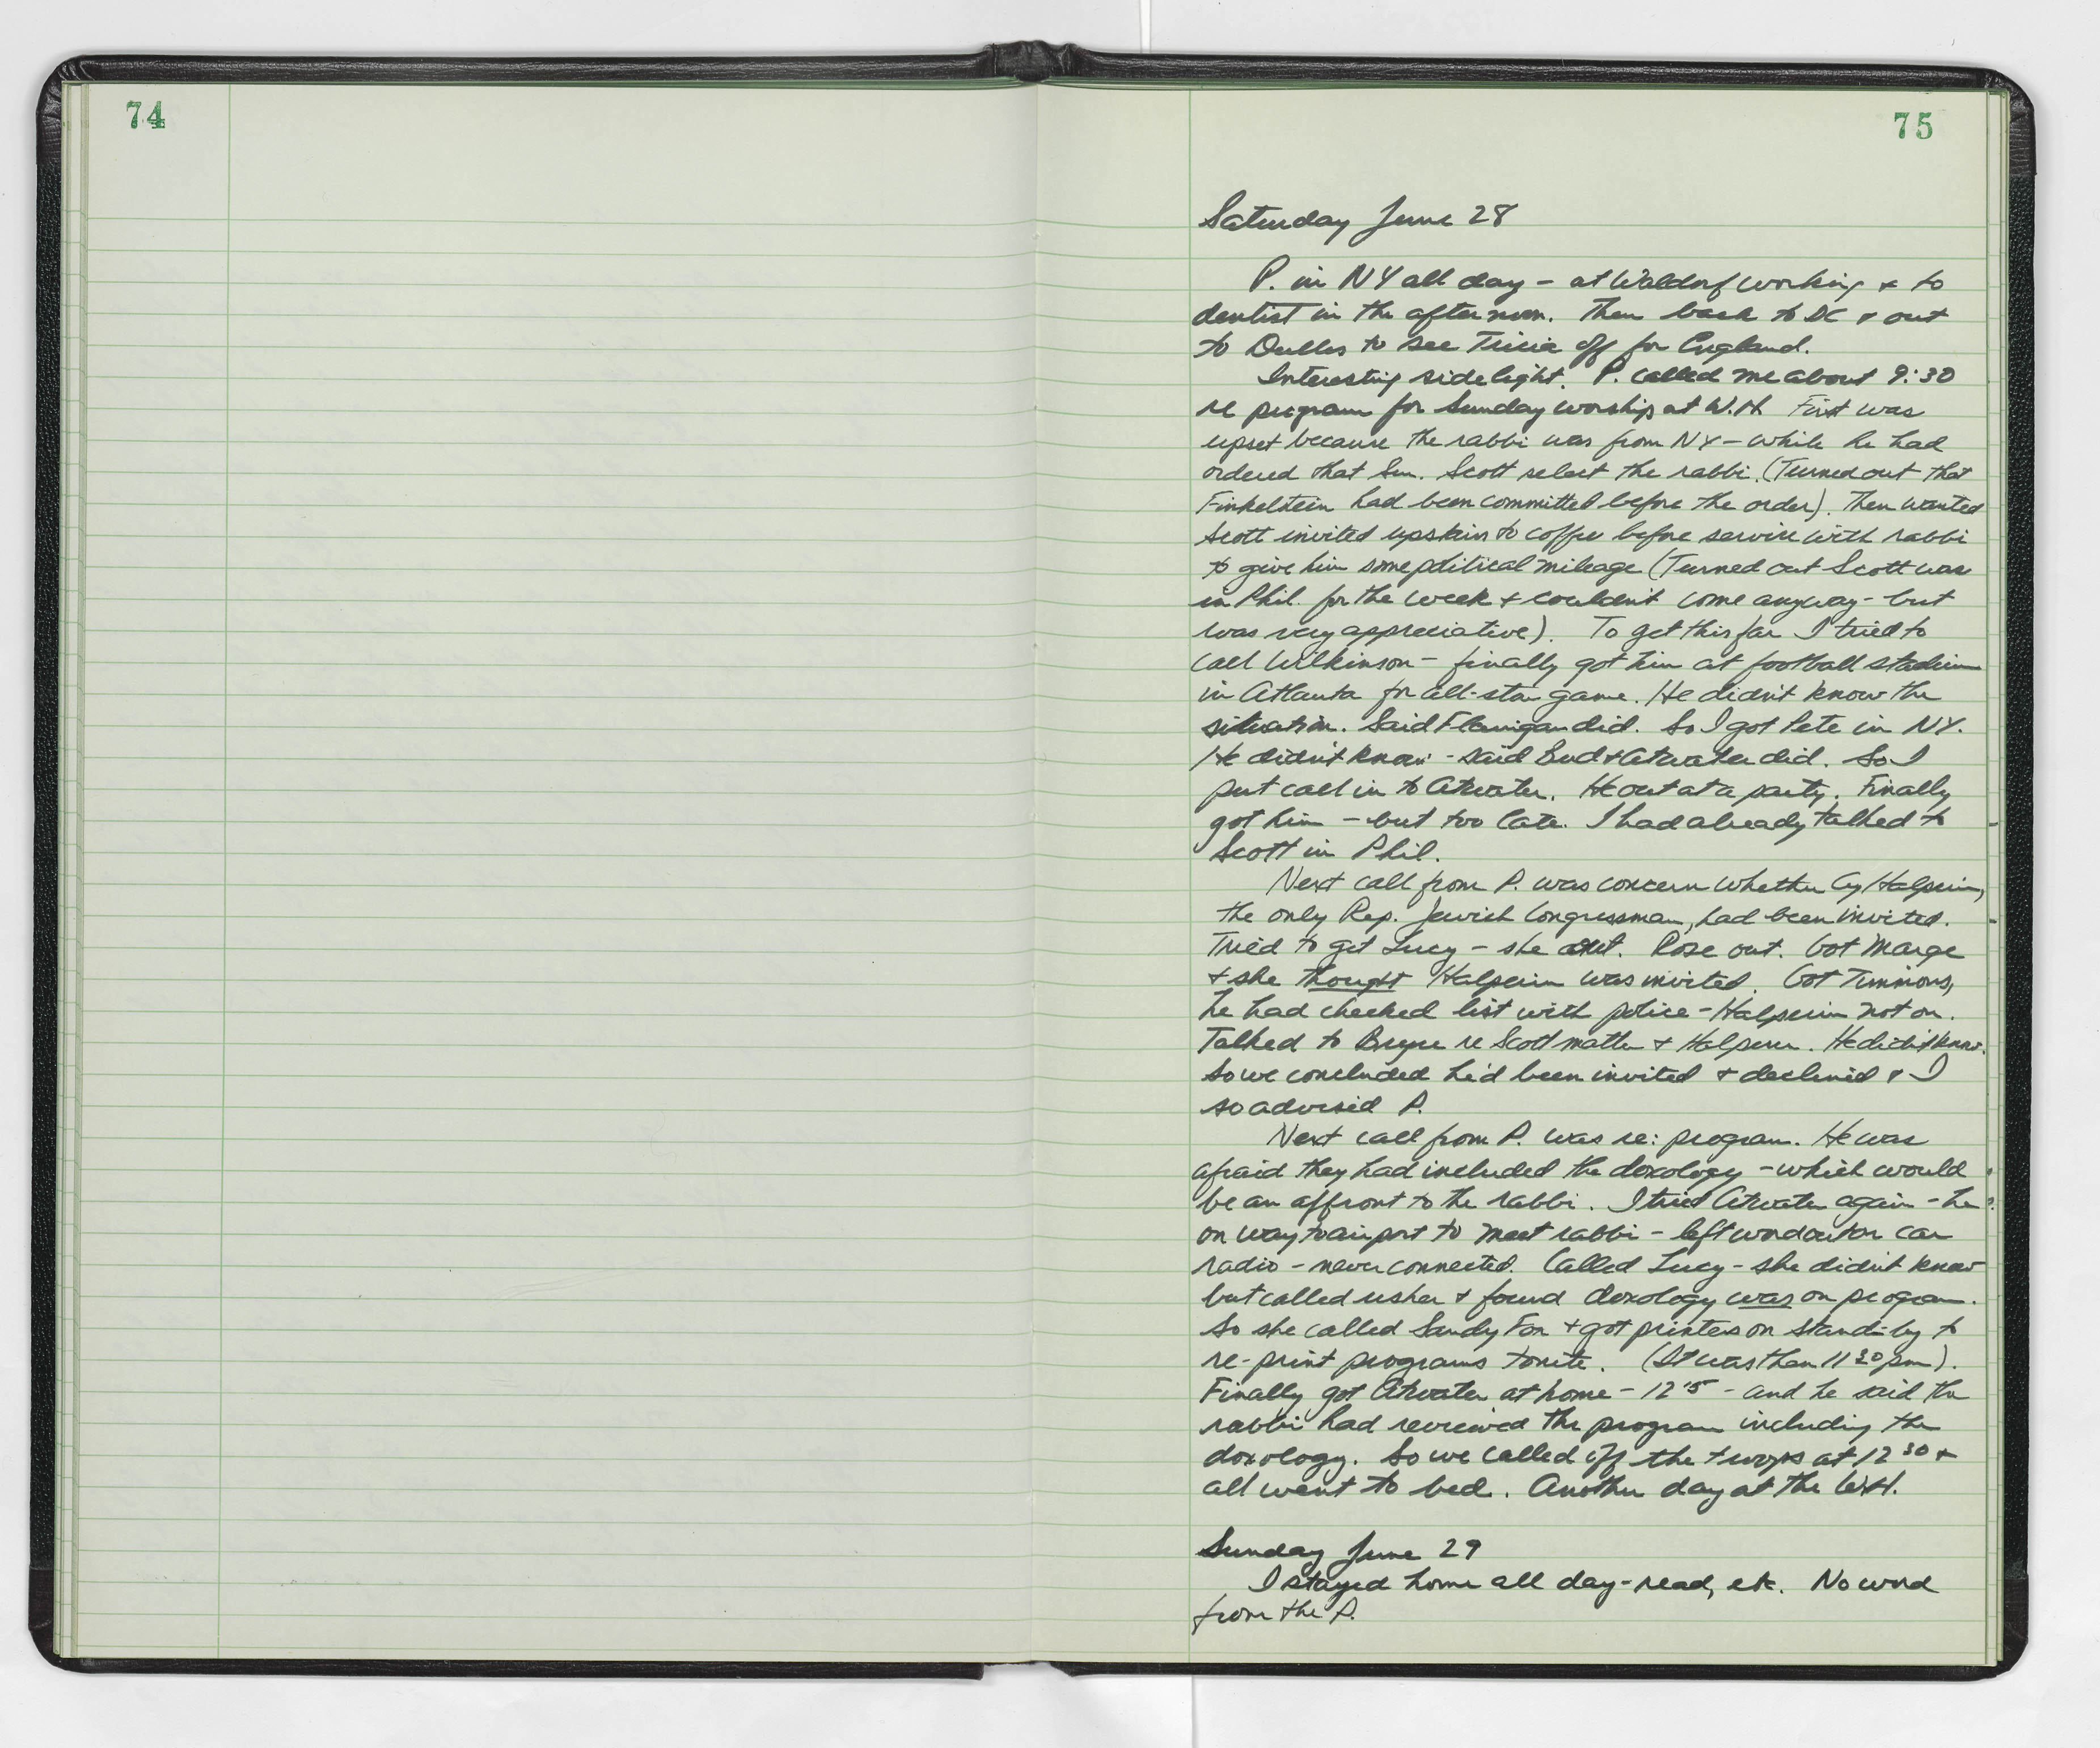 74
75
Saturday June 28
P. in NY all day - at Waldorf working & to
dentist in the afternoon. Then back to DC & out
to Dulles to see Tricia off for England.
Interesting sidelight. P. called me about 9:30
re program for Sunday worship at W.H. First was
upset because the rabbi was from NY - while he had
ordered that Sen. Scott select the rabbi. (Turned out that
Finkelstein had been committed before the order). Then wanted
Scott invited upstairs to coffee before service with rabbi
to give him some political mileage (Turned out Scott was
in Phil. for the week & couldn't come anyway - but
was very appreciative). To get this far I tried to
call Wilkinson - finally got him at football stadium
in Atlanta for all-star game. He didn't know the
situation. Said Flanigan did. So I got Pete in NY.
He didn't know - said Bud & Atwater did. So I
put call in to Atwater. He out at a party. Finally
got him - but too late. I had already talked to
Scott in Phil.
Next call from P. was concern whether Cy Halpern,
the only Rep. Jewish Congressman, had been invited.
Tried to get Lucy - she out. Rose out. Got Marge
& she thought Halpern was invited. Got Timmons,
he had checked list with police - Halpern not on.
Talked to Bryce re Scott matter & Halpern. He didn't know.
So we concluded he'd been invited & declined & I
so advised P.
Next call from P. was re: program. He was
afraid they had included the doxology - which would
be an affront to the rabbi. I tried Atwater again - he
on way to airport to meet rabbi - left word on car
radio - never connected. Called Lucy - she didn't know
but called usher & found doxology was on program.
So she called Sandy Fox & got printers on stand-by to
re-print programs tonite. (It was then 11 30 pm).
Finally got Atwater at home - 12 15 - and he said the
rabbi had reviewed the program including the
doxology. So we called off the troops at 12 30 &
all went to bed. Another day at the W.H.
Sunday June 29
I stayed home all day - read, etc. No word
from the P.